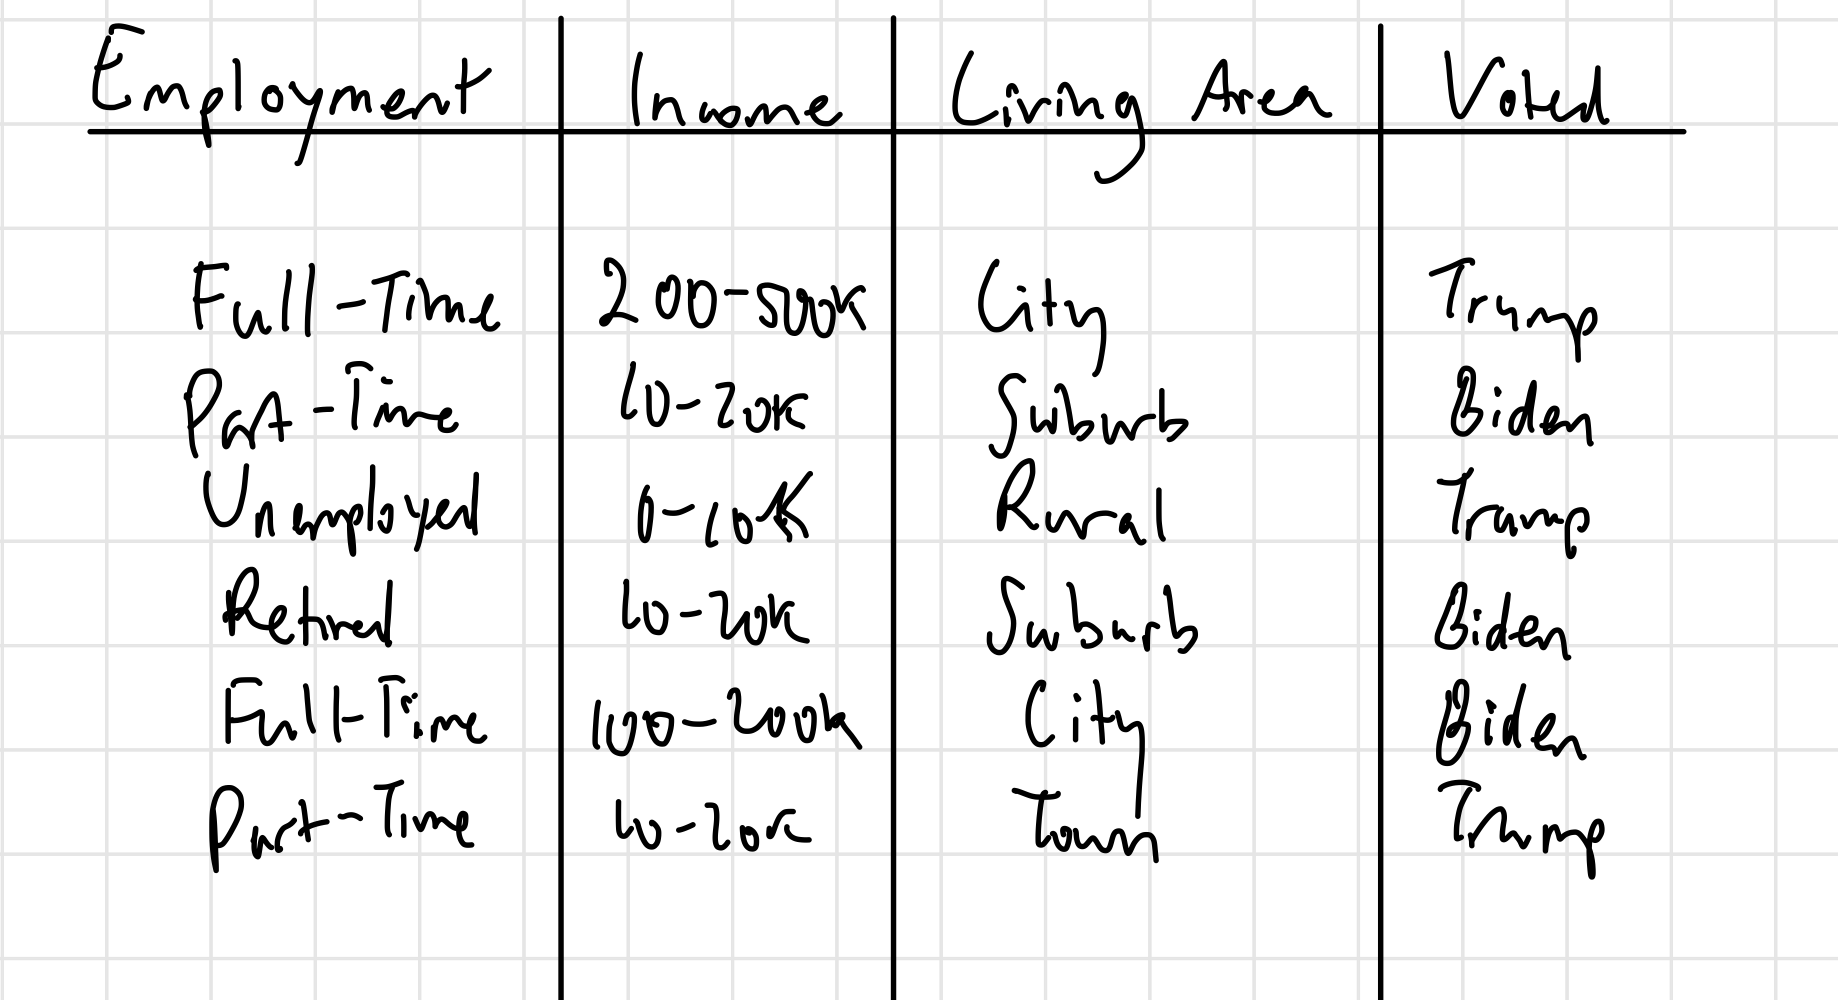 Employment Income Living Area Voted
Full-Time 200-500K City Trump
Part-Time 10-20K Suburb Biden
Unemployed 0-10K Rural Trump
Retired 10-20K Suburb Biden
Full-Time 100-200k City Biden
Part-Time 10-20K Town Trump